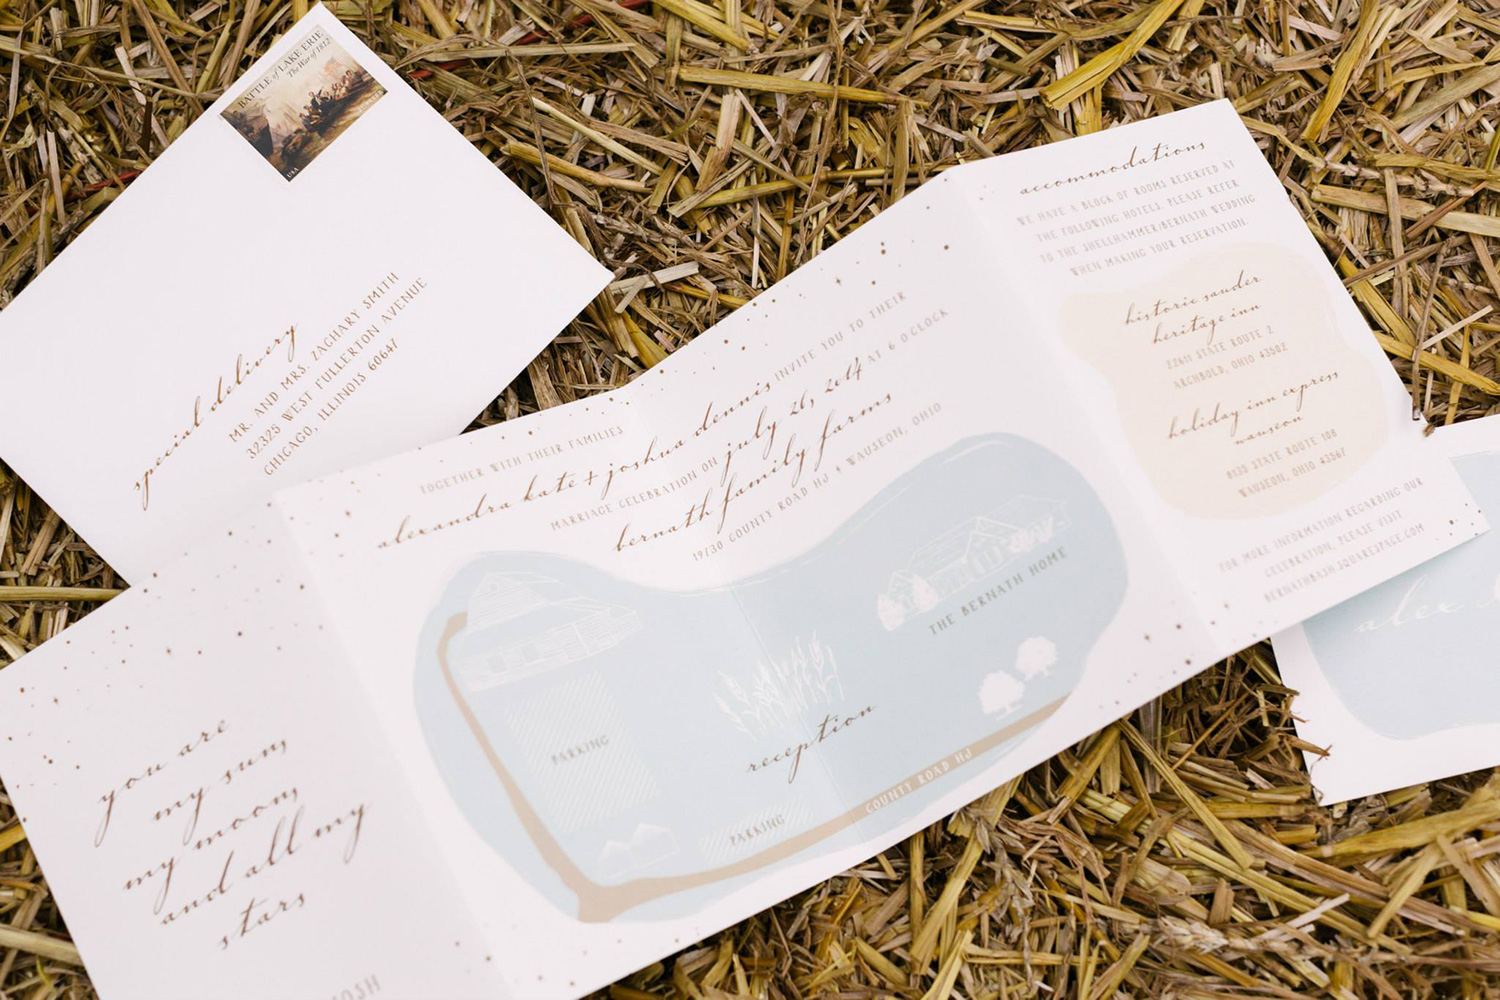 BATTLE of LAKE ERIE
The War of 1812
USA
special delivery
MR. AND MRS. ZACHARY SMITH
32325 WEST FULLERTON AVENUE
CHICAGO, ILLINOIS 60647
you are
my sun,
my moon,
and all my
stars
JOSH
TOGETHER WITH THEIR FAMILIES
alexandra kate + joshua dennis INVITE YOU TO THEIR
MARRIAGE CELEBRATION ON july 26, 2014 AT 6 O CLOCK
bernath family farms
19730 COUNTY ROAD HJ + WAUSEON, OHIO
THE BERNATH HOME
PARKING
reception
PARKING
COUNTY ROAD HJ
accommodations
WE HAVE A BLOCK OF ROOMS RESERVED AT
THE FOLLOWING HOTELS. PLEASE REFER
TO THE SHELLHAMMER/BERNATH WEDDING
WHEN MAKING YOUR RESERVATION.
historic sauder
heritage inn
22611 STATE ROUTE 2
ARCHBOLD, OHIO 43502
holiday inn express
wauseon
8135 STATE ROUTE 108
WAUSEON, OHIO 43567
FOR MORE INFORMATION REGARDING OUR
CELEBRATION, PLEASE VISIT
BERNATHBASH.SQUARESPACE.COM
alex